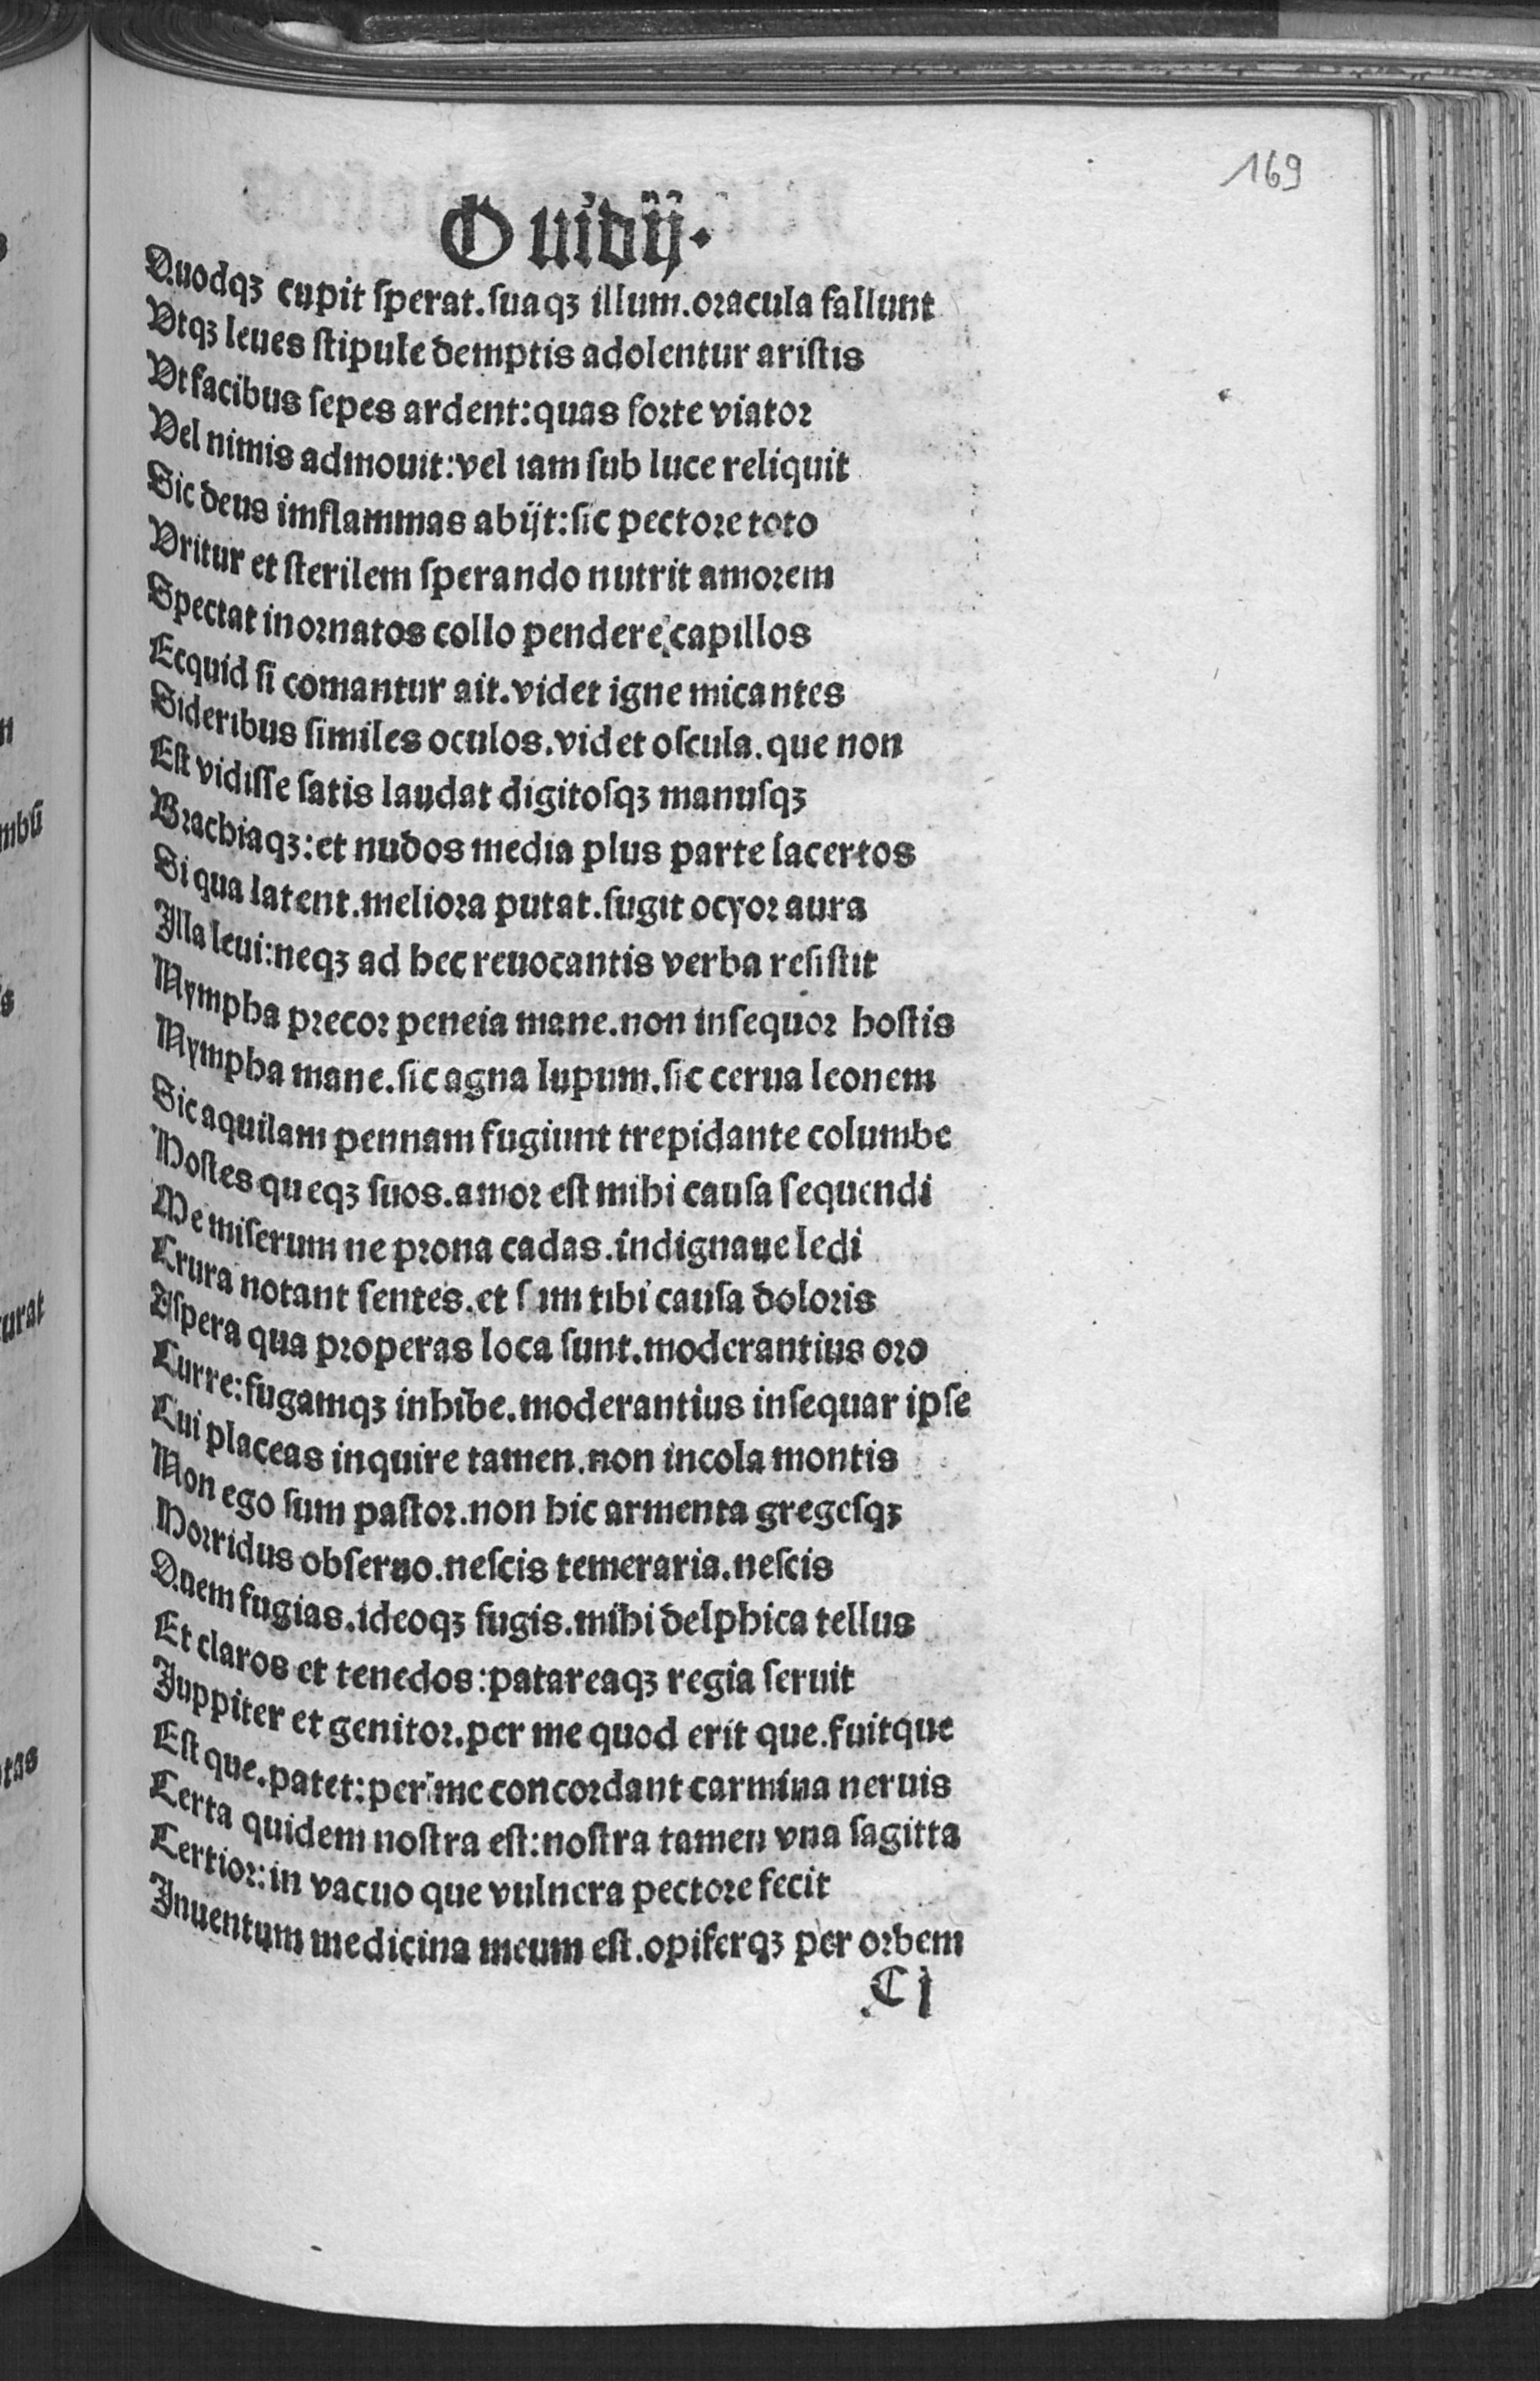 169
Ouidij.
Quodqꝫ cupit sperat.suaqꝫ illum.oracula fallunt
Vtqꝫ leues stipule demptis adolentur aristis
Vt facibus sepes ardent:quas forte viator
Vel nimis admouit:vel iam sub luce reliquit
Sic deus imflammas abijt:sic pectore toto
Vritur et sterilem sperando nutrit amorem
Spectat inornatos collo pendere capillos
Ecquid si comantur ait.videt igne micantes
Sideribus similes oculos.videt oscula.que non
Est vidisse satis laudat digitosqꝫ manusqꝫ
Brachiaqꝫ:et nudos media plus parte lacertos
Si qua latent.meliora putat.fugit ocyor aura
Illa leui:neqꝫ ad hec reuocantis verba resistit
Nympha precor peneia mane.non insequor hostis
Nympha mane.sic agna lupum.sic cerua leonem
Sic aquilam pennam fugiunt trepidante columbe
Hostes queqꝫ suos.amor est mihi causa sequendi
Me miserum ne prona cadas.indignaue ledi
Crura notant sentes.et sim tibi causa doloris
Aspera qua properas loca sunt.moderantius oro
Curre:fugamqꝫ inhibe.moderantius insequar ipse
Cui placeas inquire tamen.non incola montis
Non ego sum pastor.non hic armenta gregesqꝫ
Horridus obseruo.nescis temeraria.nescis
Quem fugias.ideoqꝫ fugis.mihi delphica tellus
Et claros et tenedos:patareaqꝫ regia seruit
Juppiter et genitor.per me quod erit que.fuitque
Est que.patet:per me concordant carmina neruis
Certa quidem nostra est:nostra tamen vna sagitta
Certior:in vacuo que vulnera pectore fecit
Inuentum medicina meum est.opiferqꝫ per orbem
C j